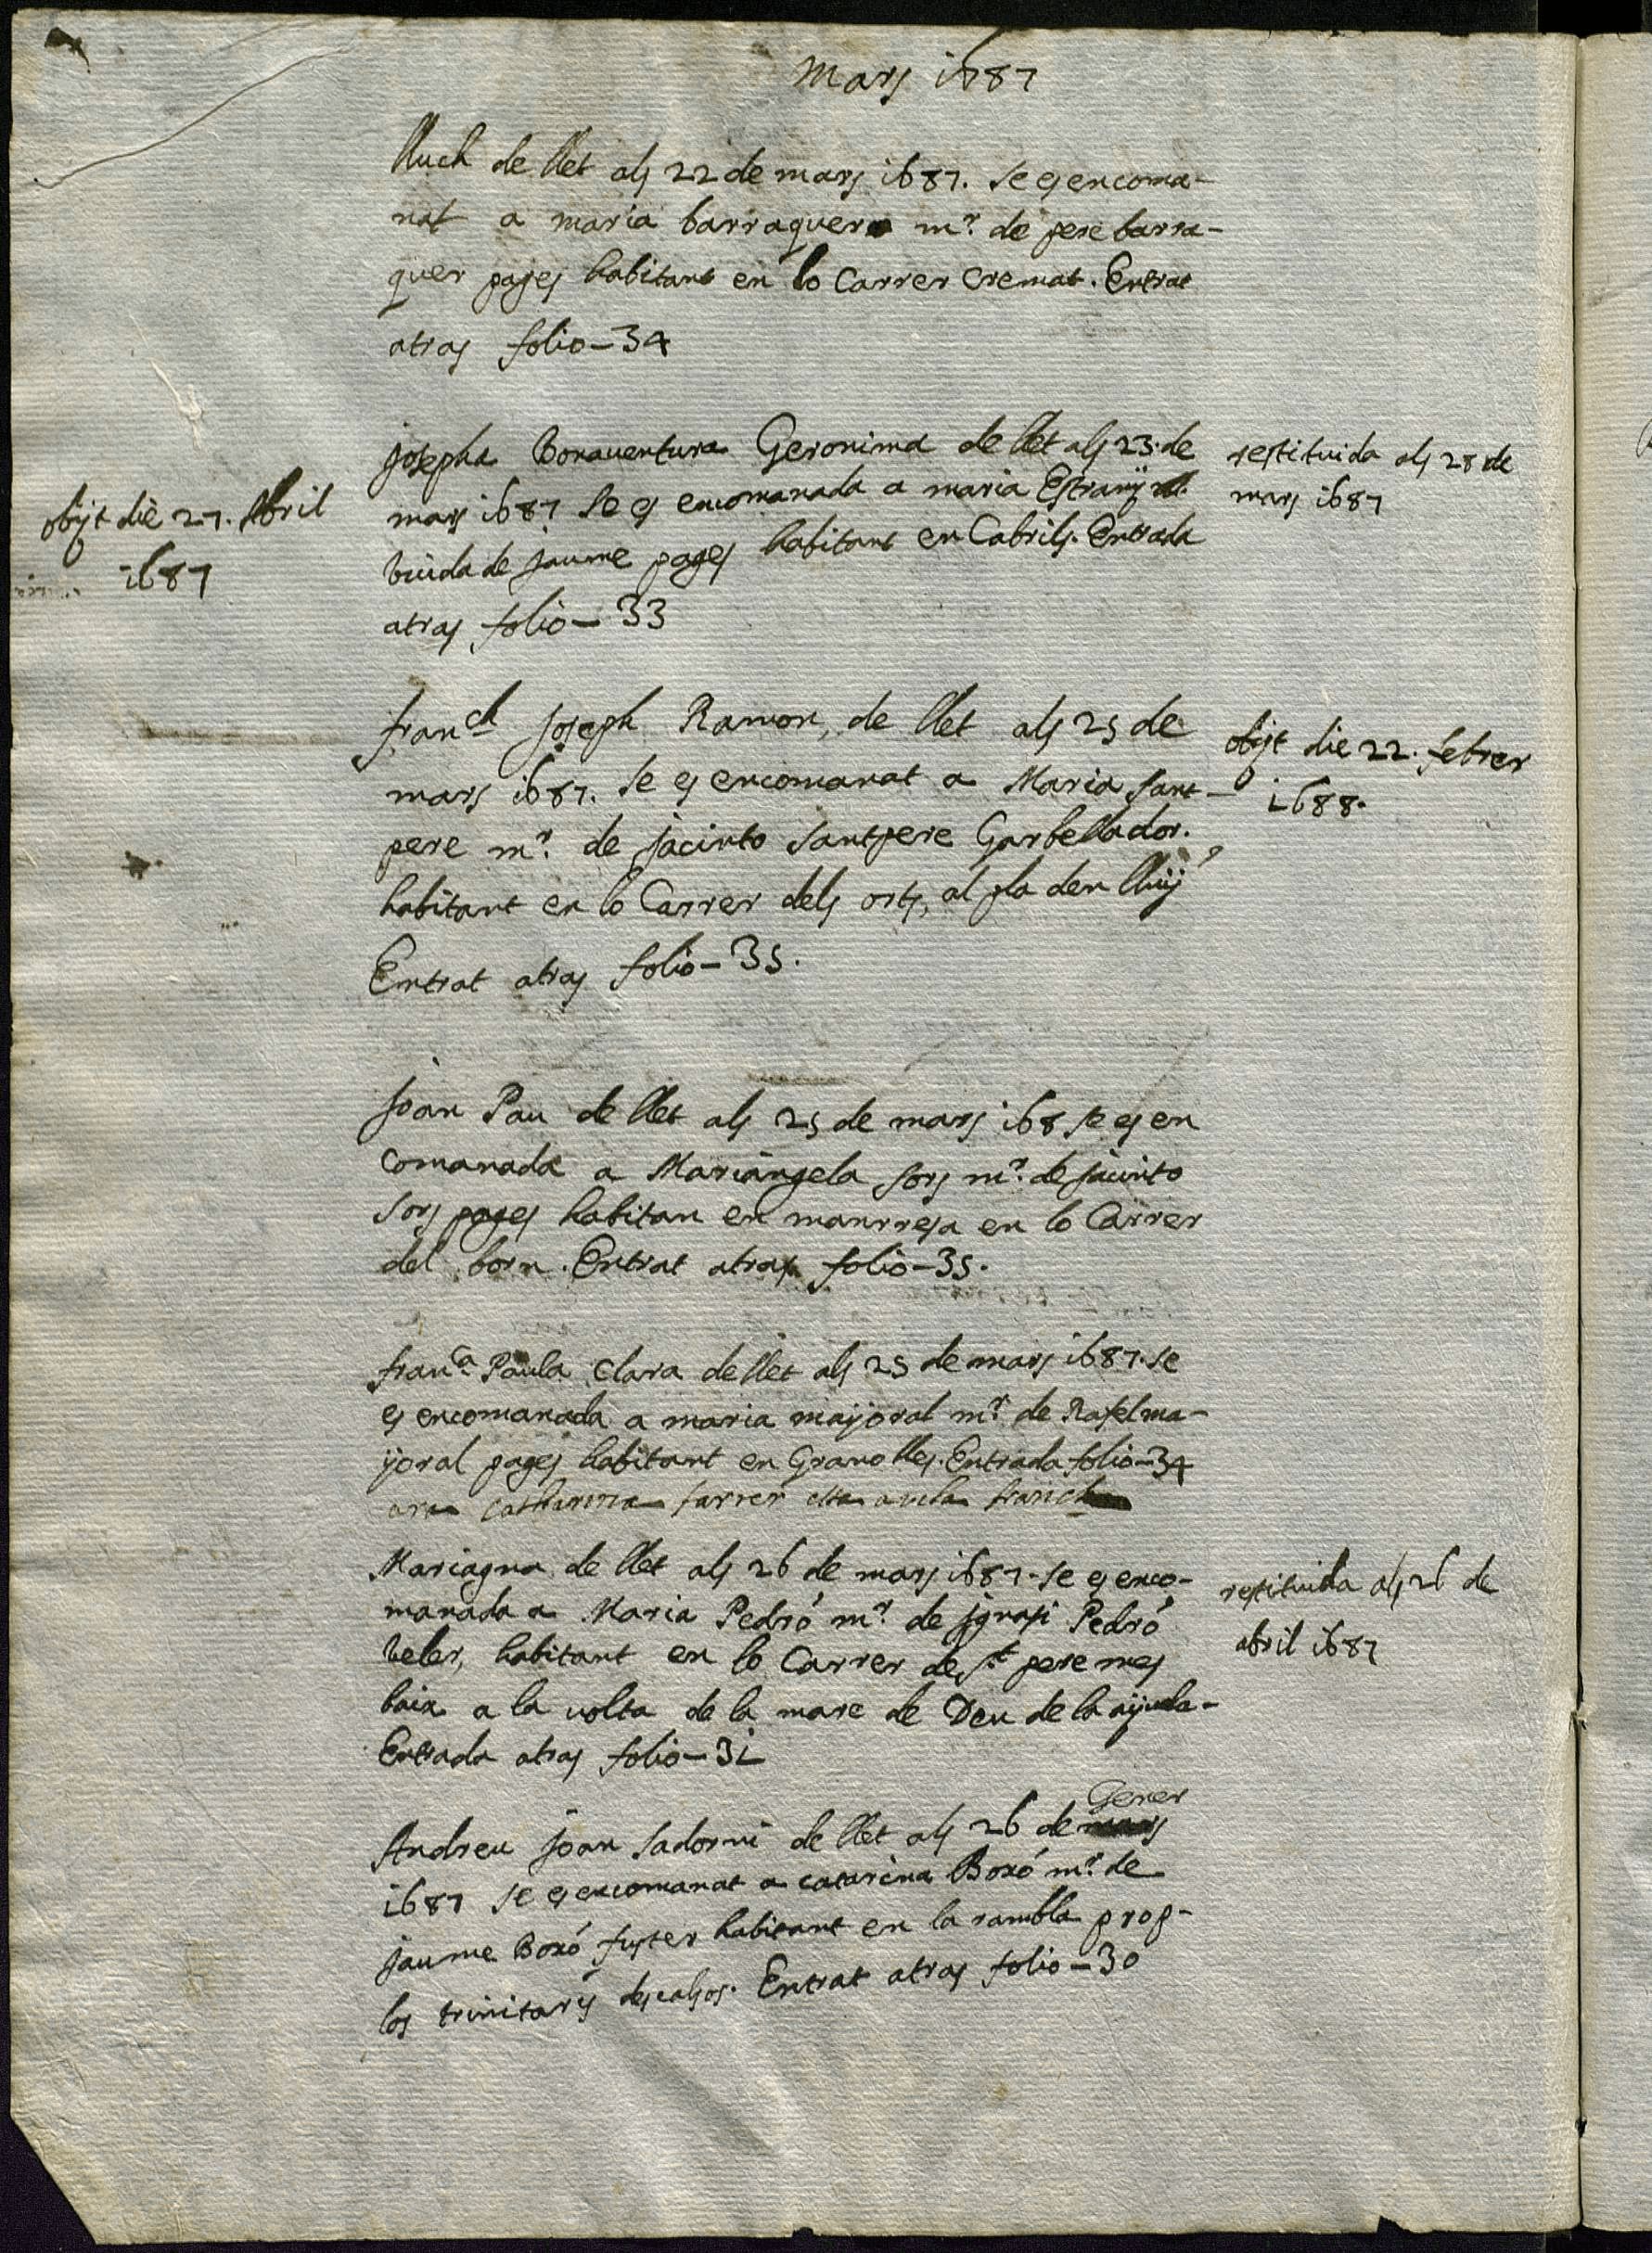 Mars 1687
lluch de llet als 22 de mars 1687. se es encoma-
nat a maria barraquera mr. de pere barra-
quer pages habitant en lo Carrer cremat. Entrat
atras folio-34
josepha Bonaventura Geronima de llet als 23. de
mars 1687 se es encomanada a maria Estrany
viuda de jaume pages habitant en Cabrils. Entrada
atras folio-33
restituida als 28 de
mars 1687
obijt die 27. Abril
1687
franch joseph Ramon, de llet als 25 de
mars 1687. se es encomanat a Maria sant-
pere mr. de jacinto santpere Garbellador.
habitant en lo Carrer dels orts, al pla den lluy
Entrat atras folio-35.
obijt die 22. febrer
1688.
joan Pau de llet als 25 de mars 168 se es en
comanada a Mariangela sors mr. de jacinto
sors pages habitan en manrresa en lo Carrer
del born. Entrat atras folio-35.
franca Paula Clara de llet als 25 de mars 1687. se
es encomanada a maria maijoral mr. de Rafel ma-
ijoral pages habitant en Granolles. Entrada folio-34
ara Catharina farrer
Mariagna de llet als 26 de mars 1687. se es enco-
manada a Maria Pedró mr. de jgnasi Pedró
veler, habitant en lo Carrer de St pere mes
baix a la volta de la mare de Deu de la aijuda-
Entrada atras folio-31
restituida als 26 de
abril 1687
Gener
Andreu joan sadorni de llet als 26 de mars
1687 se es encomanat a catarina Boxó mr. de
jaume Boxó fuster habitant en la rambla prop-
los trinitaris descalsos. Entrat atras folio-30